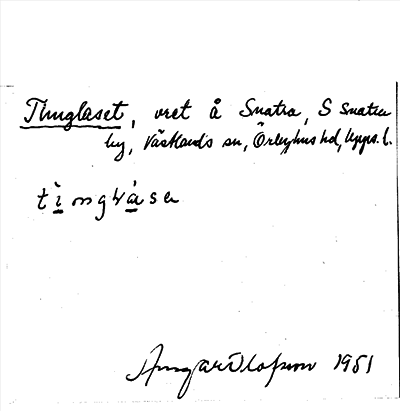 Tinglaset, vret å Snatra, S Snatra
by, Västlands sn, Örbyhus hd, Upps. l.
Ansgar Olofsson 1951